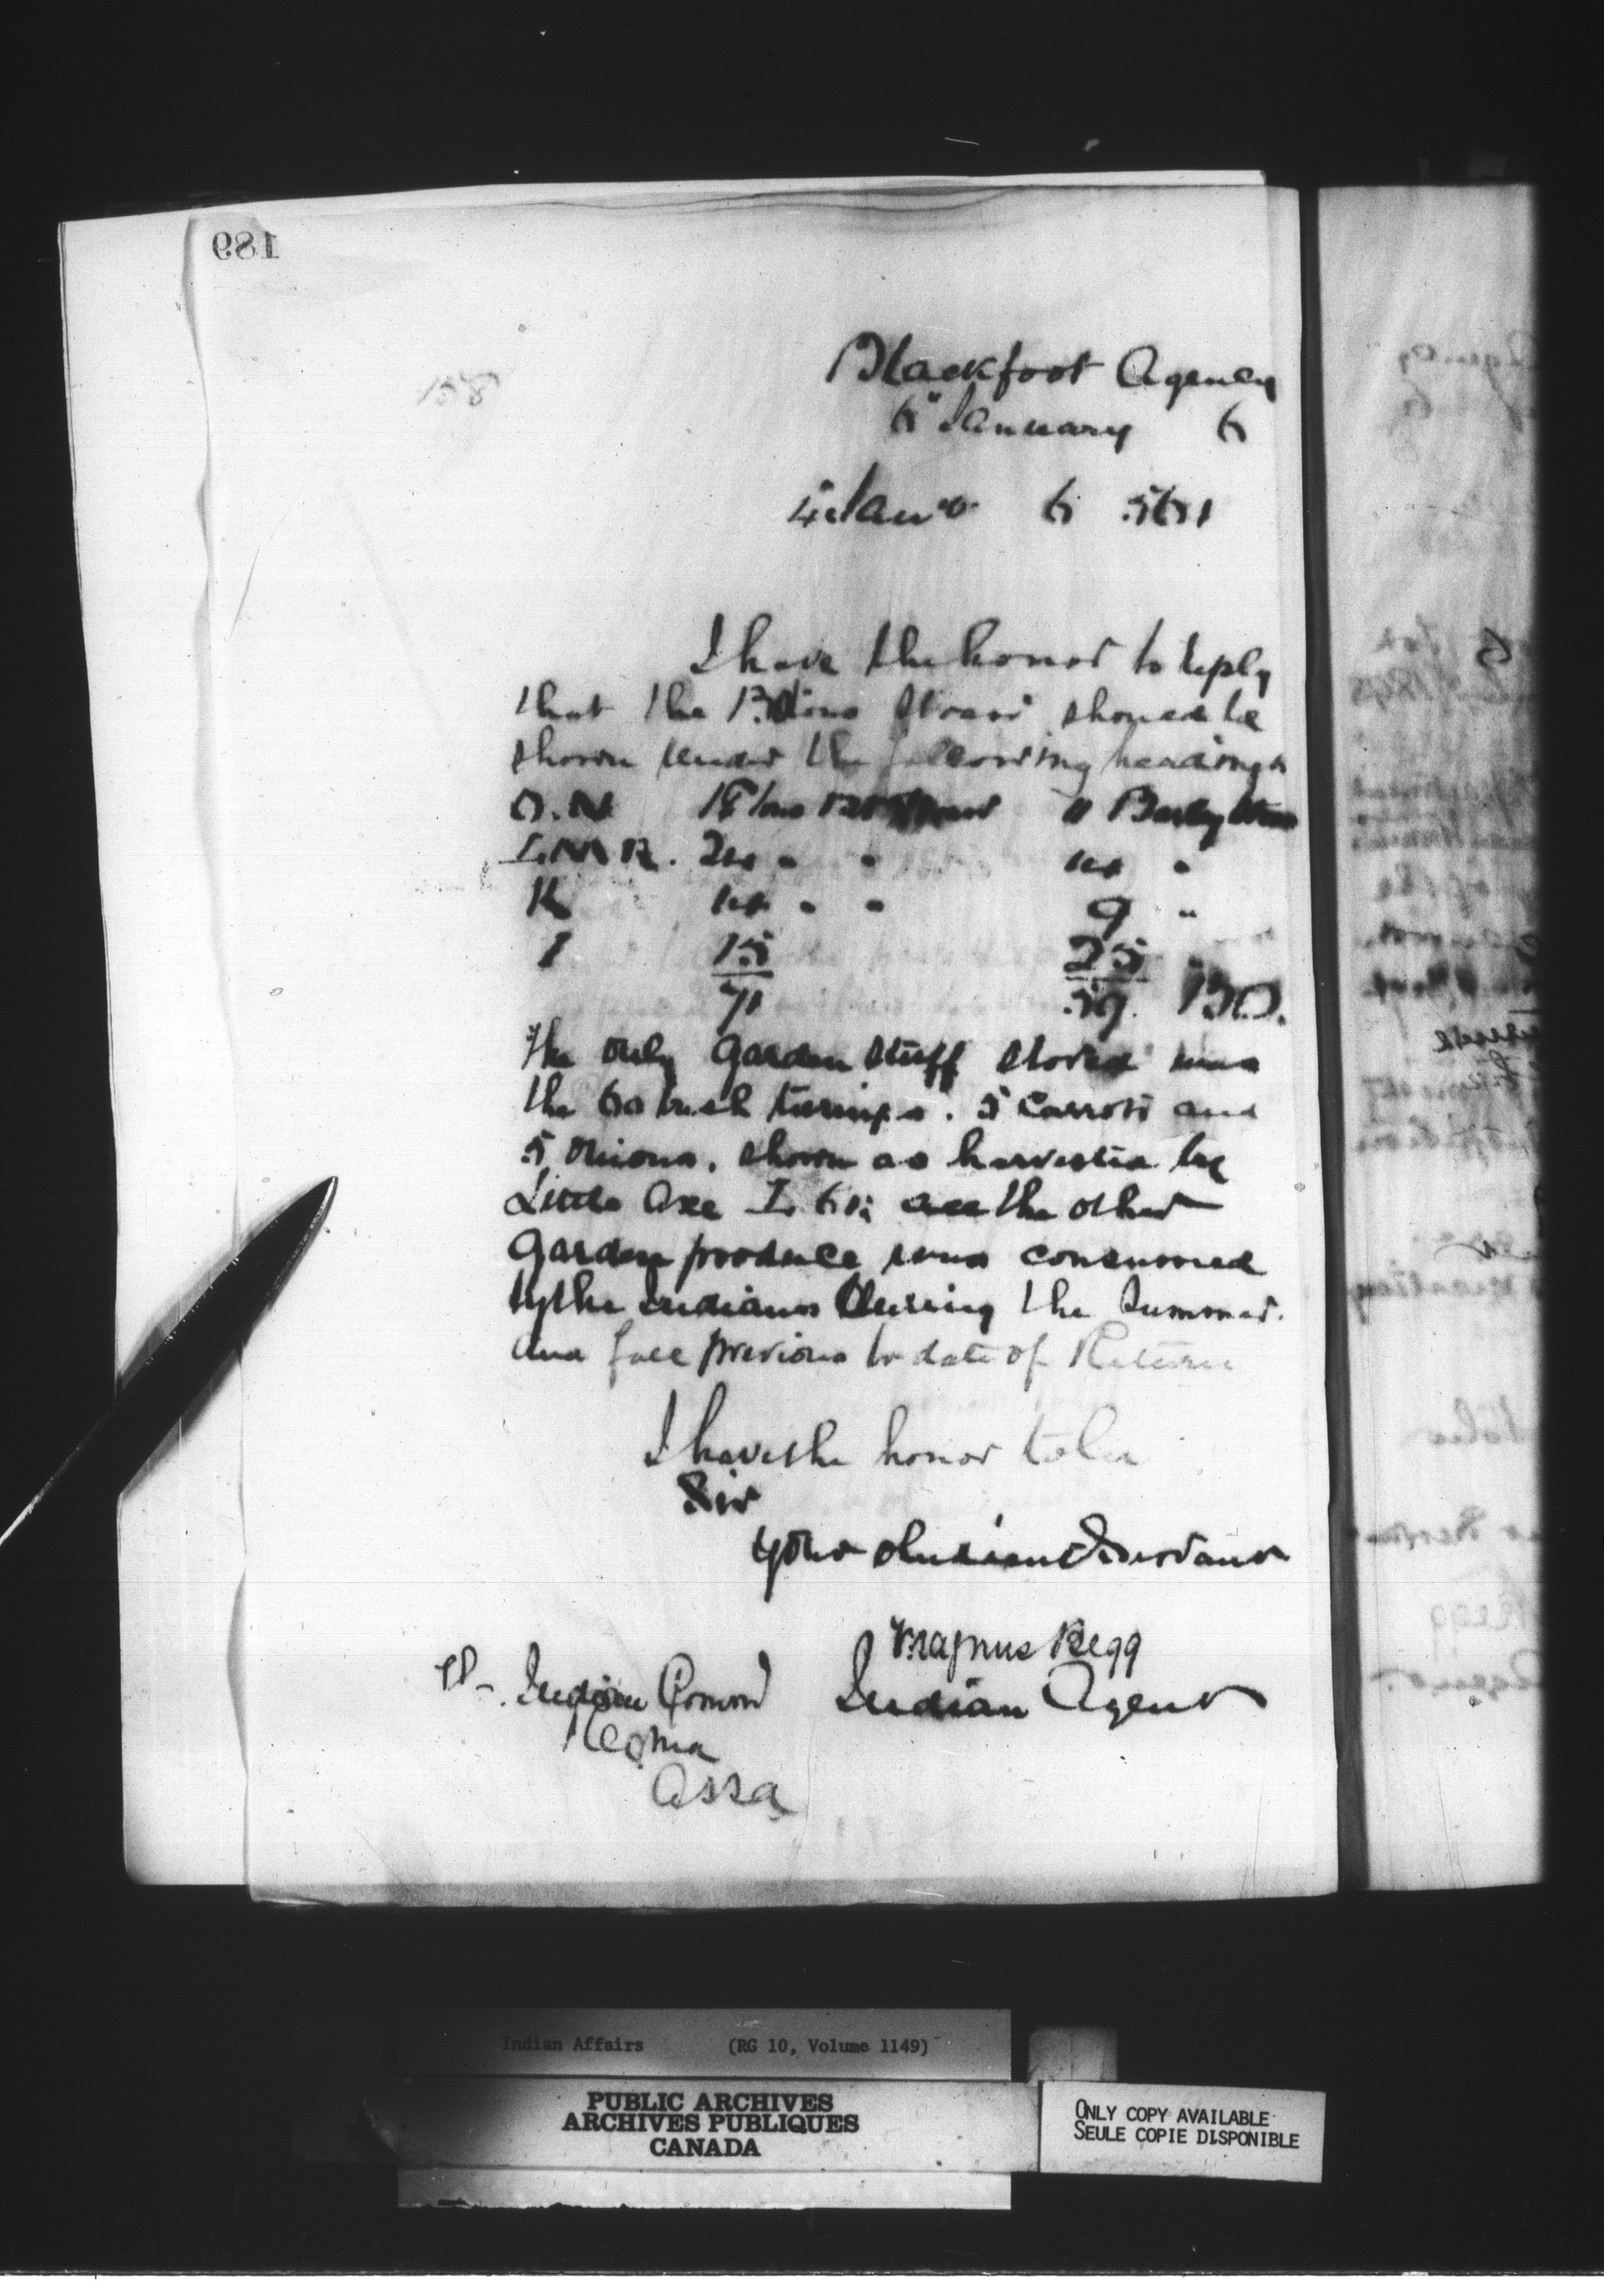 189
158
Blackfoot Agency
6" January 6
4 Jany 6 561
I have the honor to reply
that the 130 tons Straw should be
shown under the following headings
O.N 18 tons Straw 11 Barley Straw
24 " " 14 "
K 14 " " 9 "
I 15 25 "
71 59. 130.
The only Garden stuff stored was
the 60 bush turnips. 5 Carrots and
5 Onions. shown as harvested by
Little Axe all the other
Garden produce was consumed
by the Indians During the Summer.
and fall previous to date of Return
I have the honor to be
Sir
Your obedient Servant
Magnus Begg
Indian Agent
Indian Commr
Regina
Assa
Indian Affairs (RG 10, Volume 1149)
PUBLIC ARCHIVES
ARCHIVES PUBLIQUES
CANADA
ONLY COPY AVAILABLE
SEULE COPIE DISPONIBLE